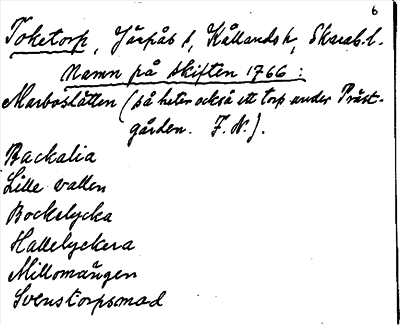 6
Toketorp, Järpås s, Kållands h, Skarab. l.
Namn på skiften 1766:
Marboslätten (så heter också ett torp under Präst-
gården. F. N.).
Backalia
Lille vallen
Bockelycka
Hallelyckera
Millomängen
Svenstorpsmad